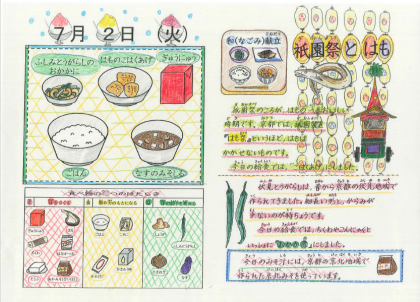 7月 2日 (火)
ふしみとうがらしの
おかかに
はものごはくあげ
ぎゅうにゅう
ごはん
なすのみそしる
和(なごみ)献立
祇園祭とはも
祇園祭のころが、はもの
時期です。京都では、祇園祭を
「はも祭」というほど、はもは
かかせないものです。
今日の給食では、「こはくあげ」にしました。
伏見とうがらしは、昔から京都の伏見地域で
作られてきました。細長い形と、からみが
少ないのが特ちょうです。
今日の給食では、ちくわやこんにゃくと
いっしょに「おかか煮」にしました。
今日のみそ汁には、京都の京北地域で
作られた京北みそを使っています。